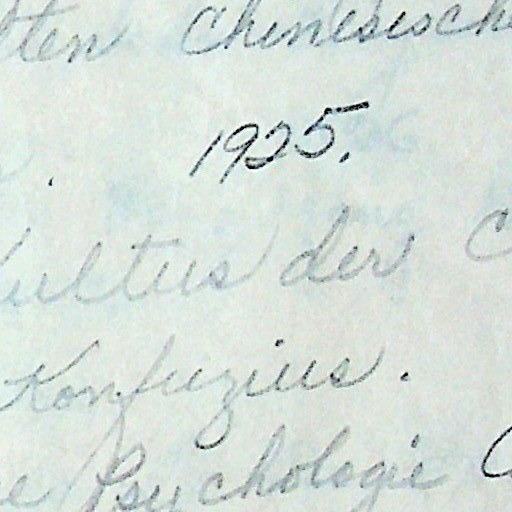 lten chinesische
1925.
Kultus der C
Konfuzius.
e Psychologie